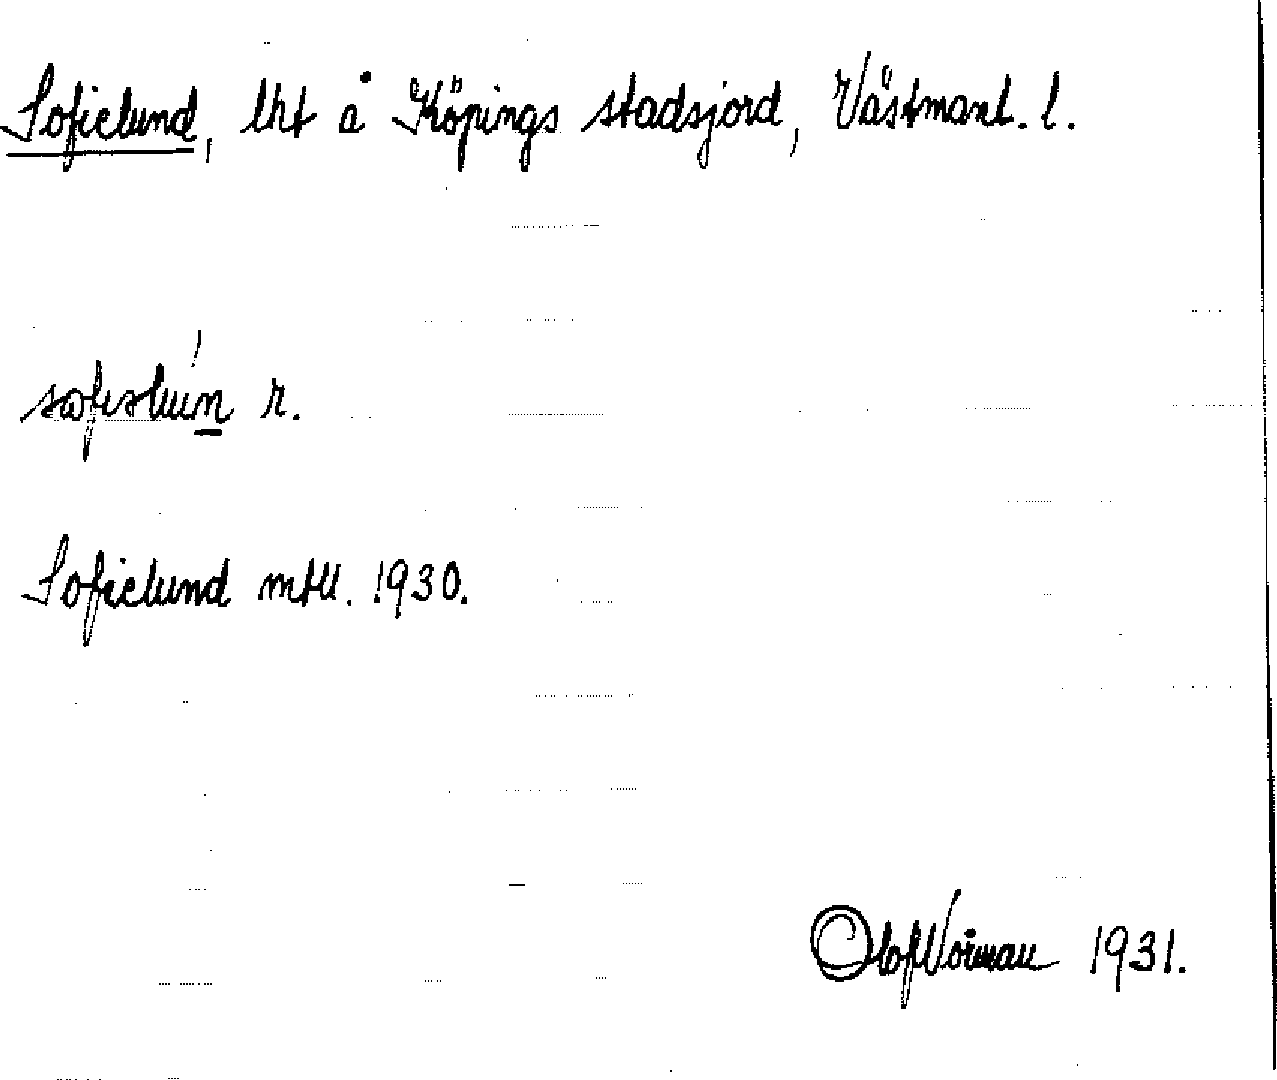 Sofielund, lht å Köpings stadsjord, Västmanl. l.
sofislún r.
Sofielund mtll. 1930.
Olof Norman 1931.